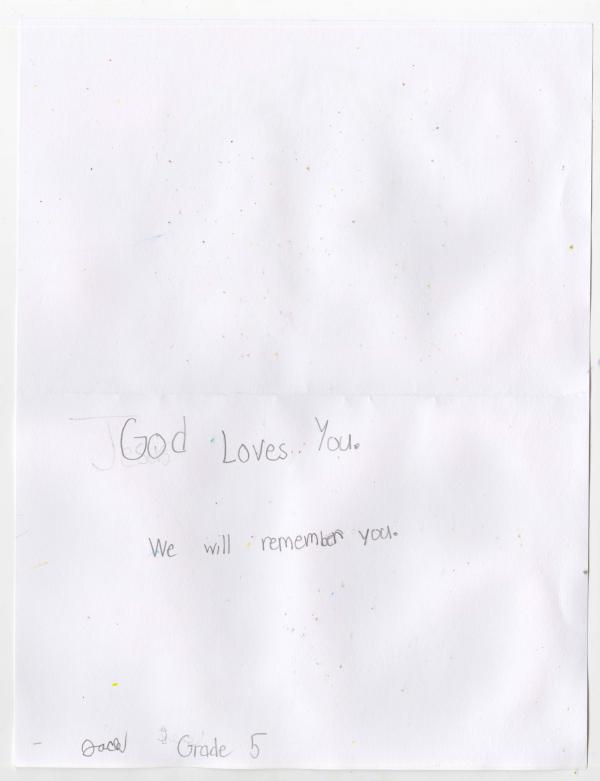 God Loves You.
We will remember you.
Grade 5